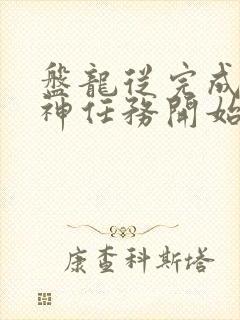 盤龍從完成
神任務開始
康查科斯塔